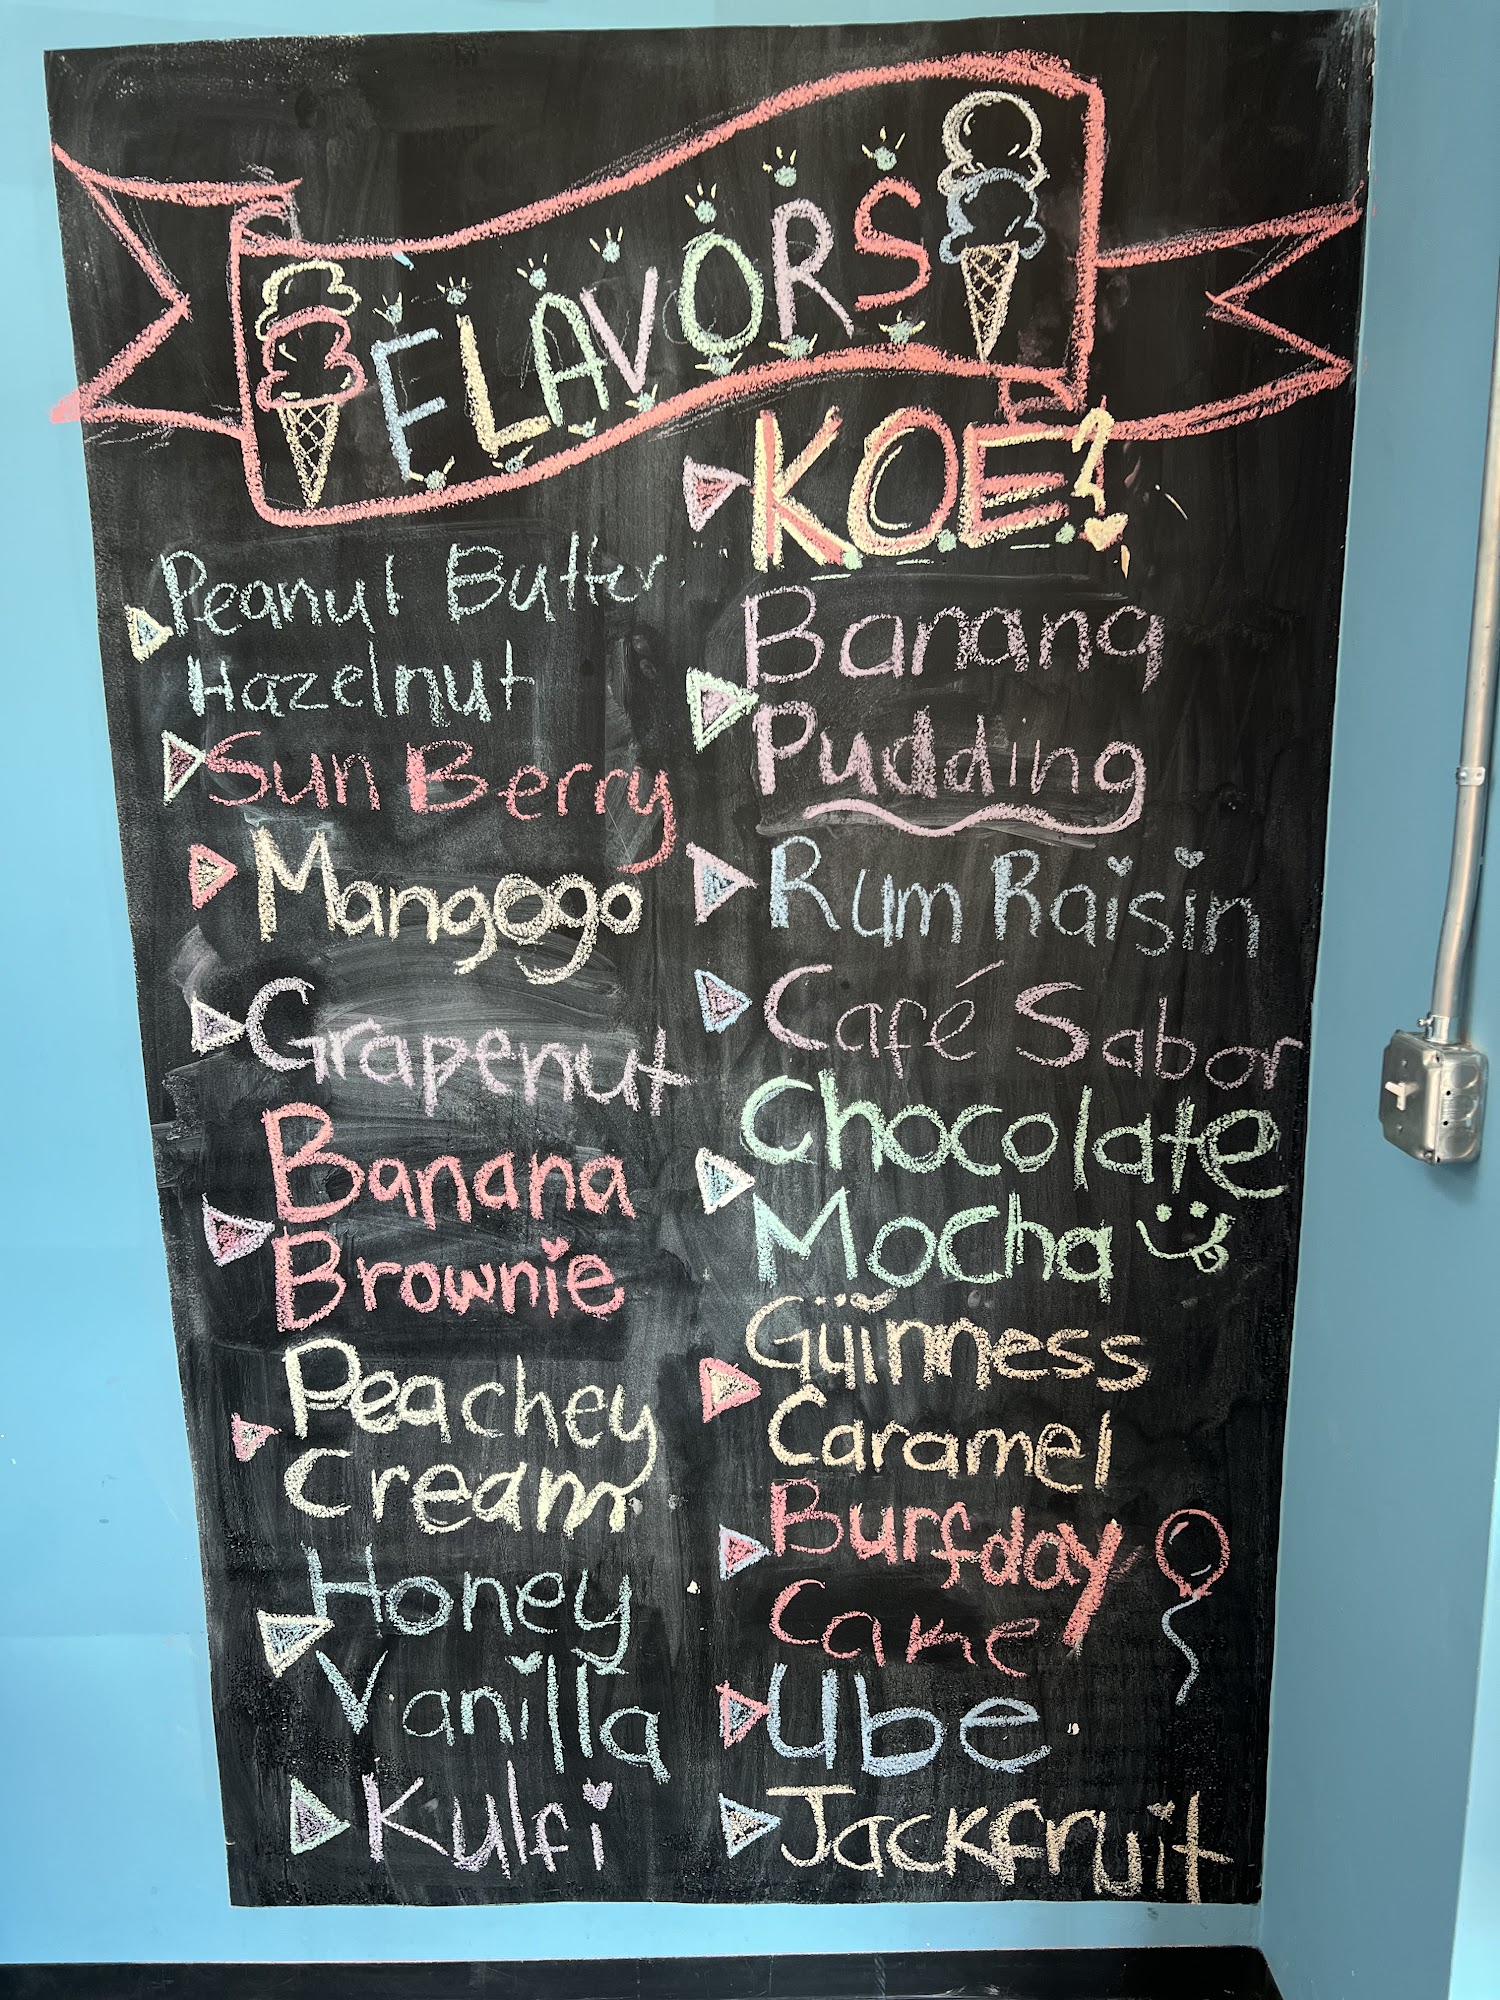 FLAVORS
Peanut Butter
Hazelnut
Sun Berry
Mangogo
Grapenut
Banana
Brownie
Peachey
Cream
Honey
Vanilla
Kulfi
KOE?
Banana
Pudding
Rum Raisin
Café Sabor
Chocolate
Mocha
Güinness
Caramel
Burfday
Cake
Ube
Jackfruit